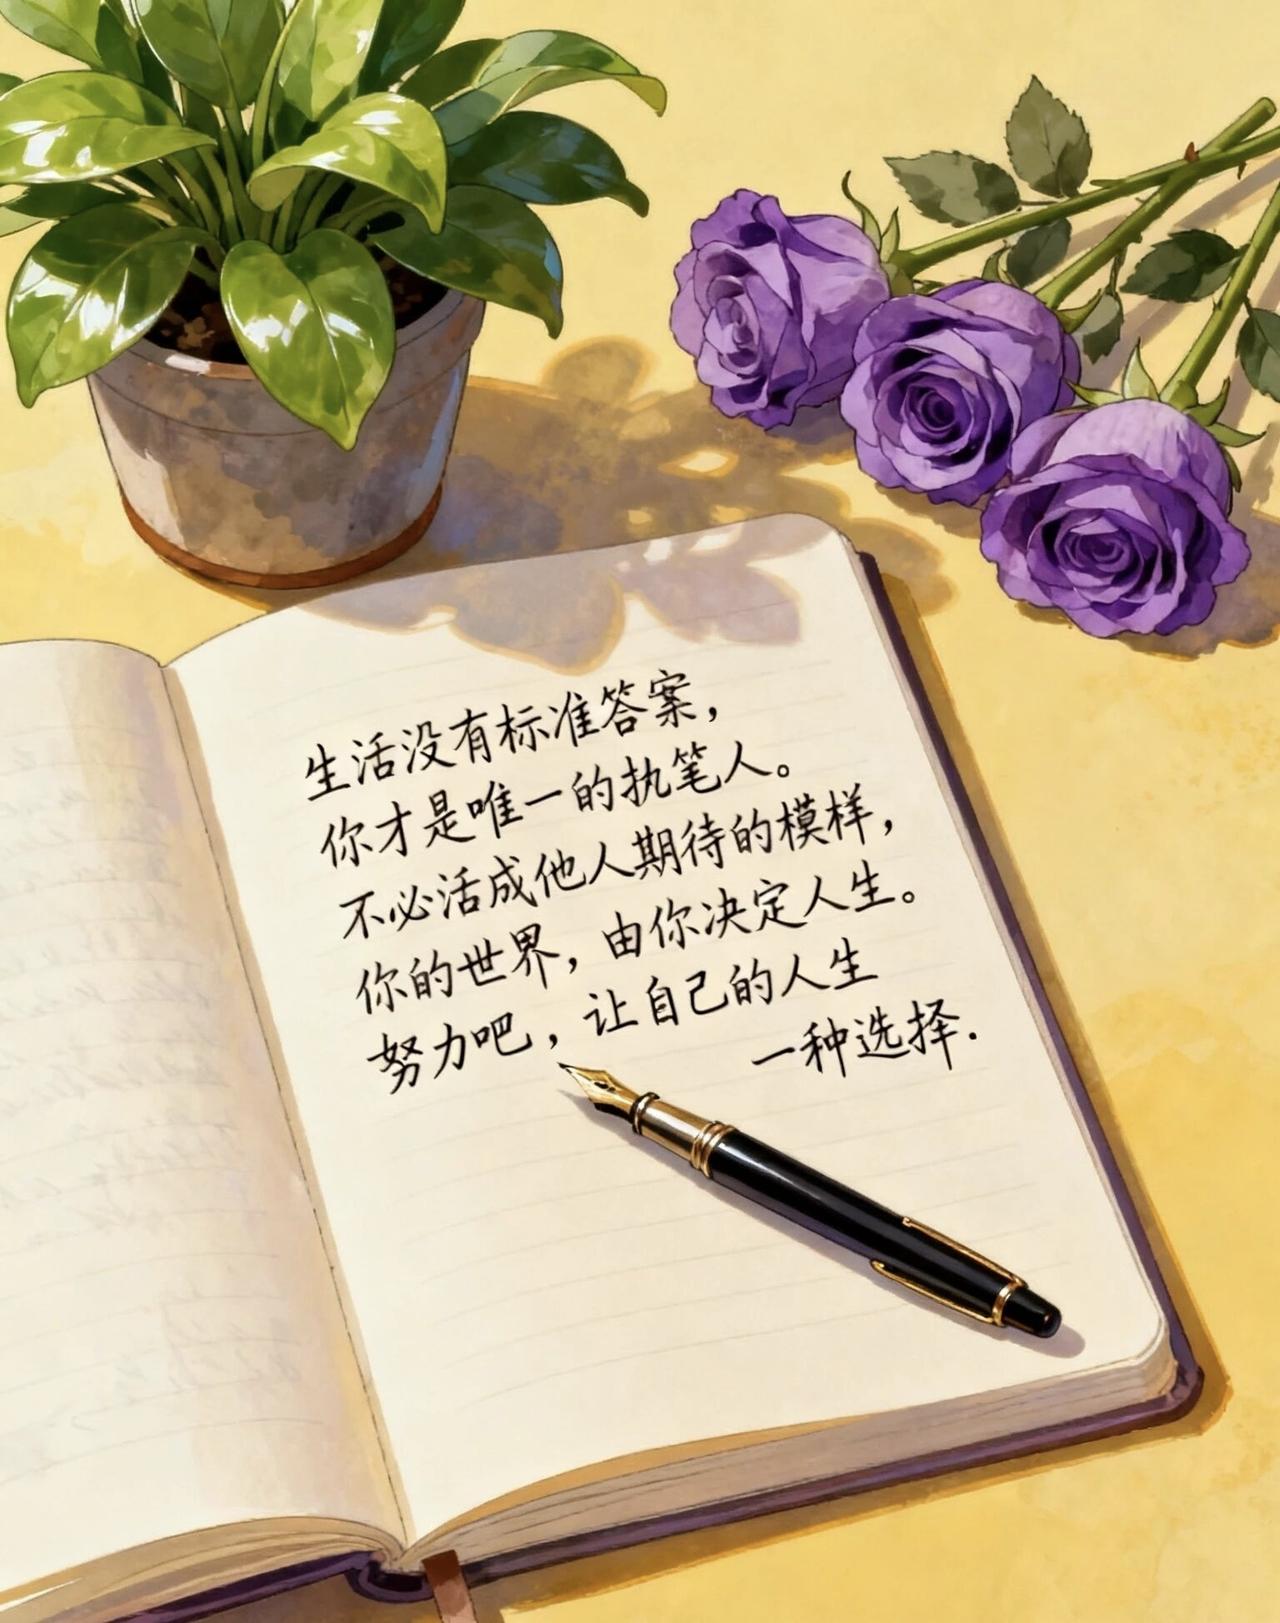 生活没有标准答案，
你才是唯一的执笔人。
不必活成他人期待的模样，
你的世界，由你决定人生。
努力吧，让自己的人生
一种选择.